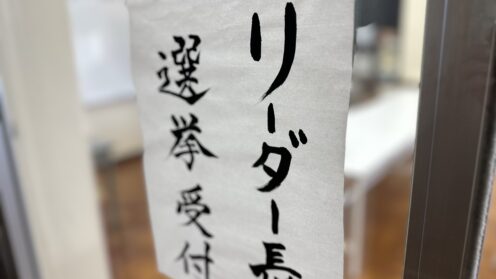 リーダー長
選挙受付